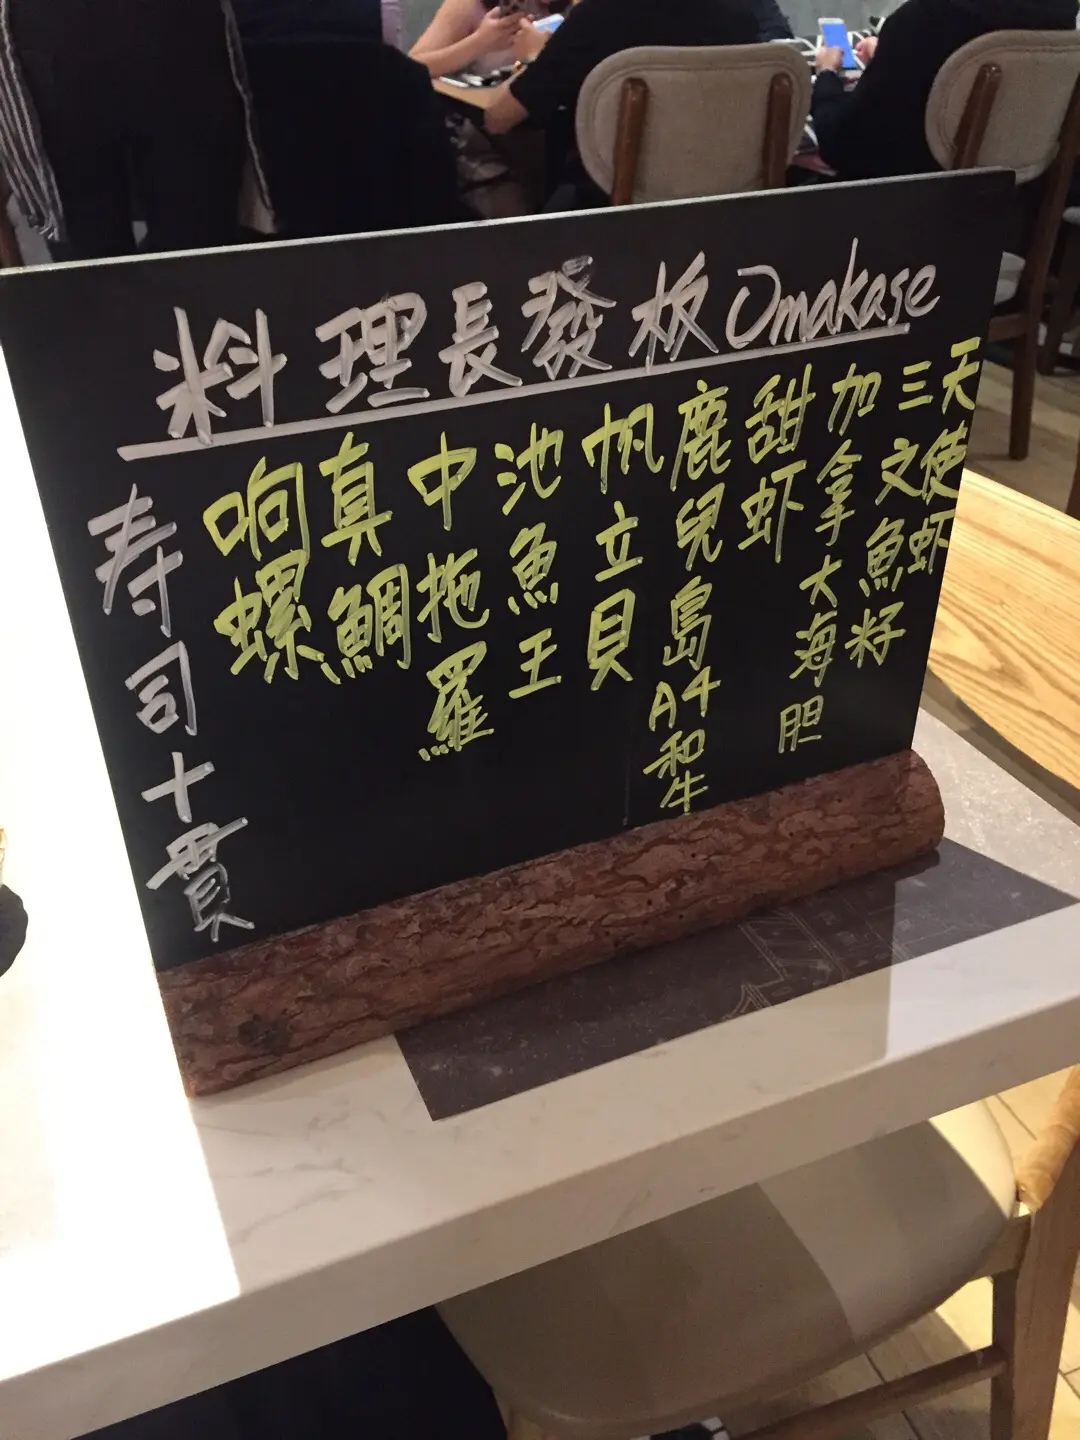 料理長發板 Omakase
寿司十貫
响螺
真鯛
中拖羅
池魚王
帆立貝
鹿兒島A4和牛
甜虾
加拿大海胆
三文魚籽
天使虾